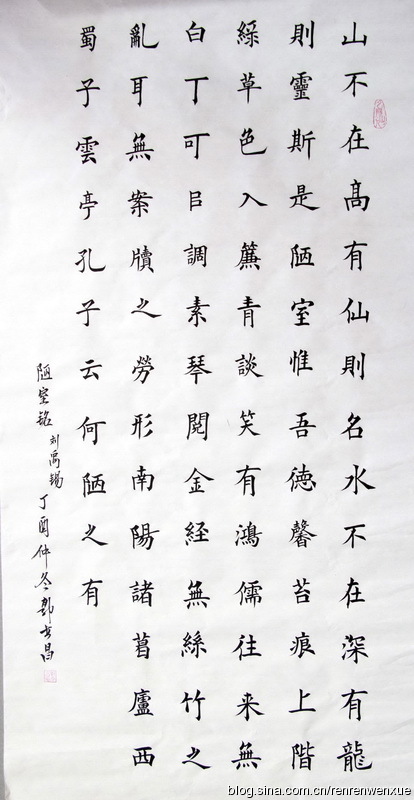 山不在髙有仙則名水不在深有龍
則靈斯是陋室惟吾德馨苔痕上階
綵草色入簾青談笑有鴻儒往来無
白丁可㠯調素琴閱金経無絲竹之
亂耳無案牘之勞形南陽諸葛廬西
蜀子雲亭孔子云何陋之有
陋室铭 刘禹锡 丁酉仲冬 郭昌
blog.sina.com.cn/renrenwenxue